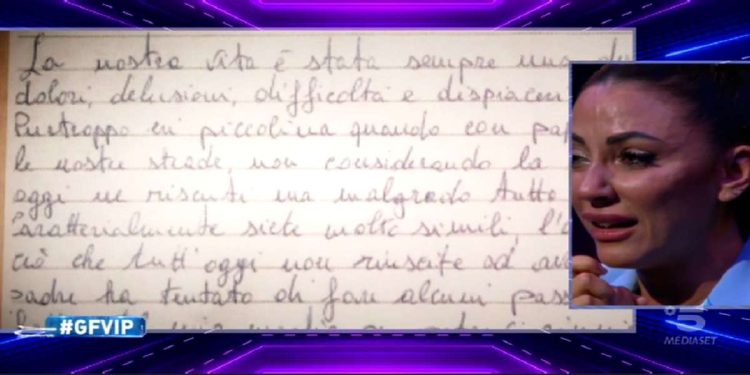 La nostra vita è stata sempre una
dolori, delusioni, difficoltà e dispiacer
Purtroppo eri piccolina quando con pap
le nostre strade, non considerando la
oggi ne risenti ma malgrado tutto
Caratterialmente siete molto simili, l'a
ciò che tutt'oggi non riuscite ad av
padre ha tentato di fare alcuni pass
#GFVIP
5
MEDIASET